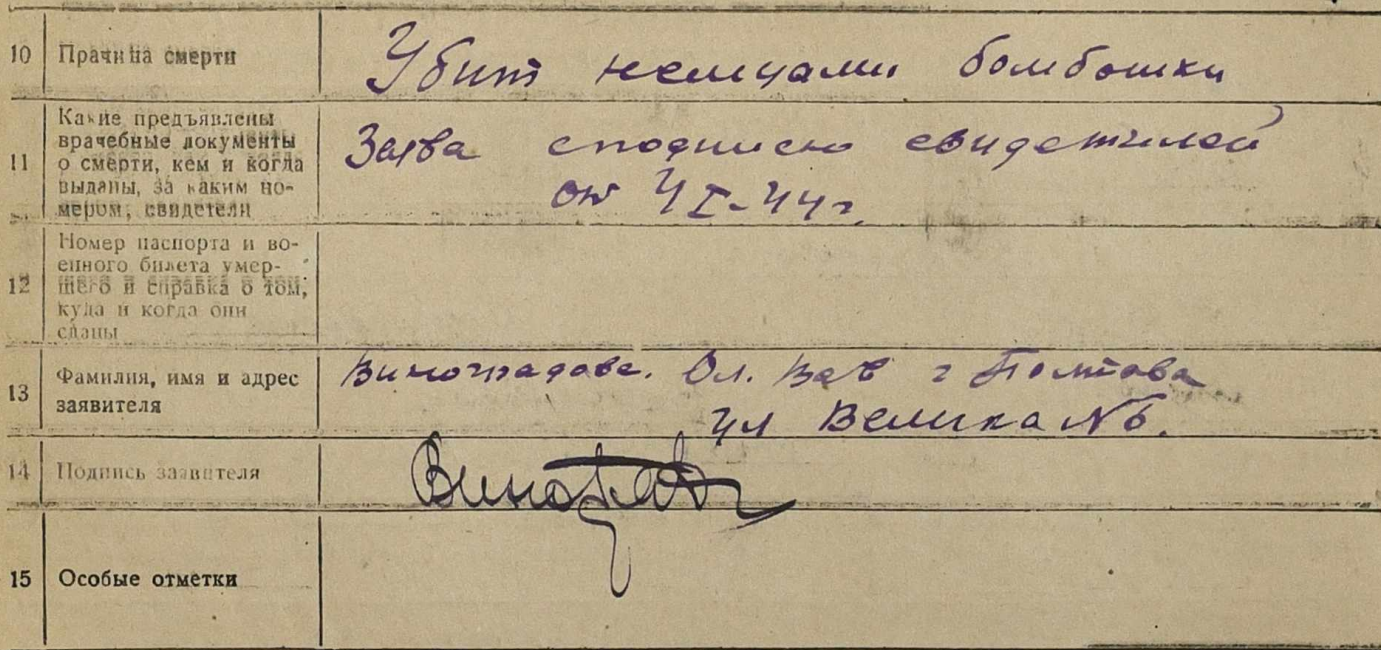 10 Причина смерти Убит немцами бомбошки
11 Какие предъявлены
врачебные документы
о смерти, кем и когда
выданы, за каким но-
мером, свидетели
Заява сподписю свидетилей
от 4 I-44 г.
12 Номер паспорта и во-
енного билета умер-
шего и справка о том,
куда и когда они
сданы
13 Фамилия, имя и адрес
заявителя
Виноградова. Ол. Вас г Полтава
ул Велика № 6.
14 Подпись заявителя
15 Особые отметки